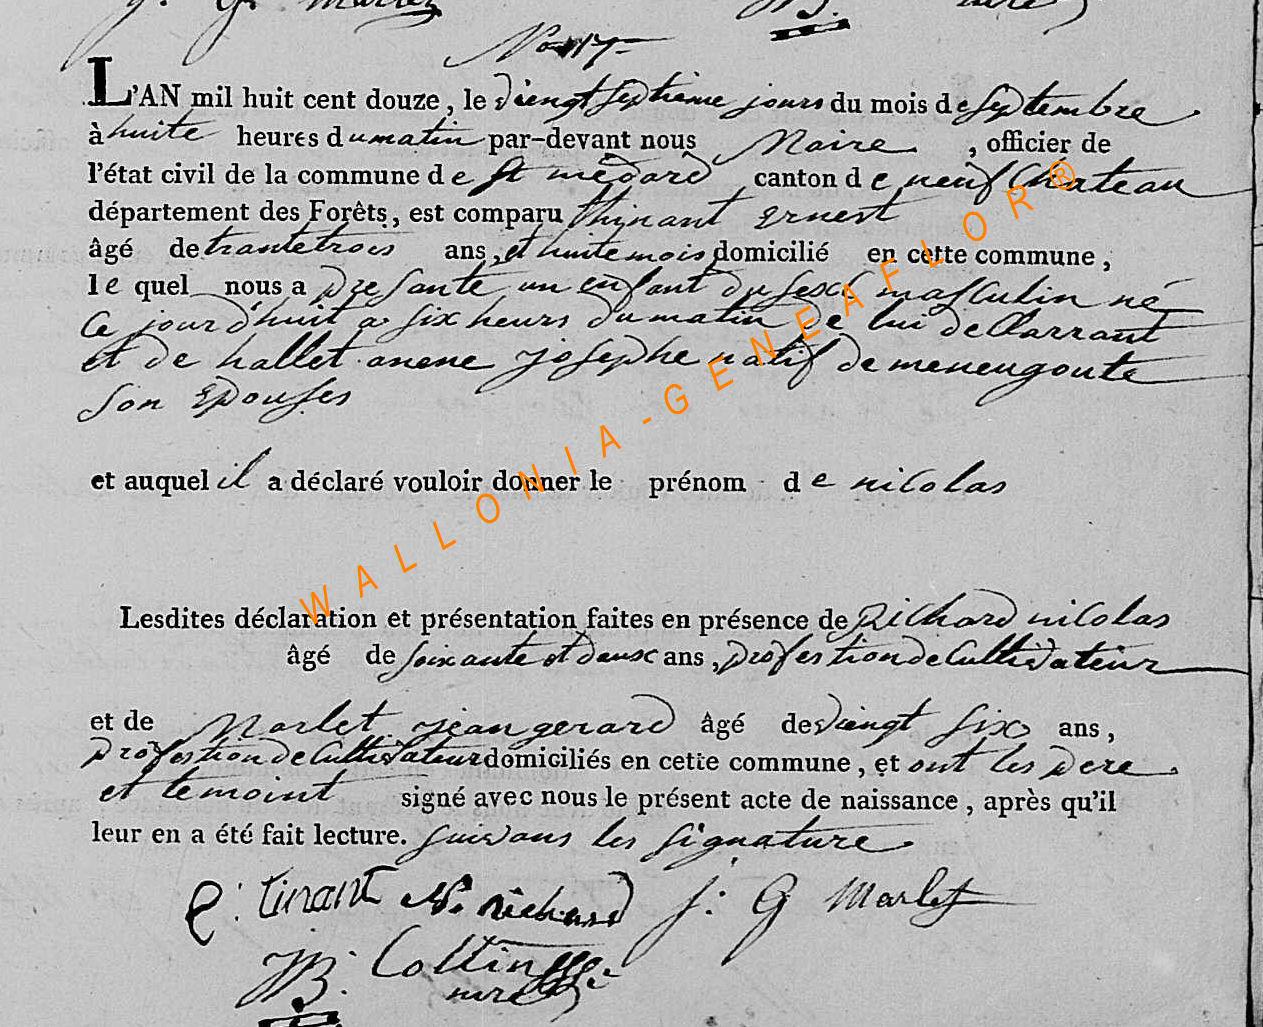 J. G. Marlet JB. mire
No 17
L'AN mil huit cent douze, le viengt septieme jours du mois de septembre
à huite heures du matin par-devant nous Maire, officier de
l'état civil de la commune de St médard canton de neuf Chateau
département des Forêts, est comparu thinant Ernest
âgé de trante trois ans, et huite mois domicilié en cette commune,
le quel nous a presante un enfant du sexe masculin né
Ce jour d'huit a six heurs du matin de lui deClarrant
et de hallet anene josephe natif de meneugoute
son Epouses
et auquel il a déclaré vouloir donner le prénom de nicolas
Lesdites déclaration et présentation faites en présence de Richard nicolas
âgé de soixante et deux ans, profestion de Cultivateur
et de Marlet jean gerard âgé de viengt six ans,
profestion de Cultivateur domiciliés en cette commune, et ont les pere
et temoint signé avec nous le présent acte de naissance, après qu'il
leur en a été fait lecture. suivans les signature
e: tinant N. richard J: G Marlet
JB: Collin
mire
WALLONIA-GENEAFLOR®